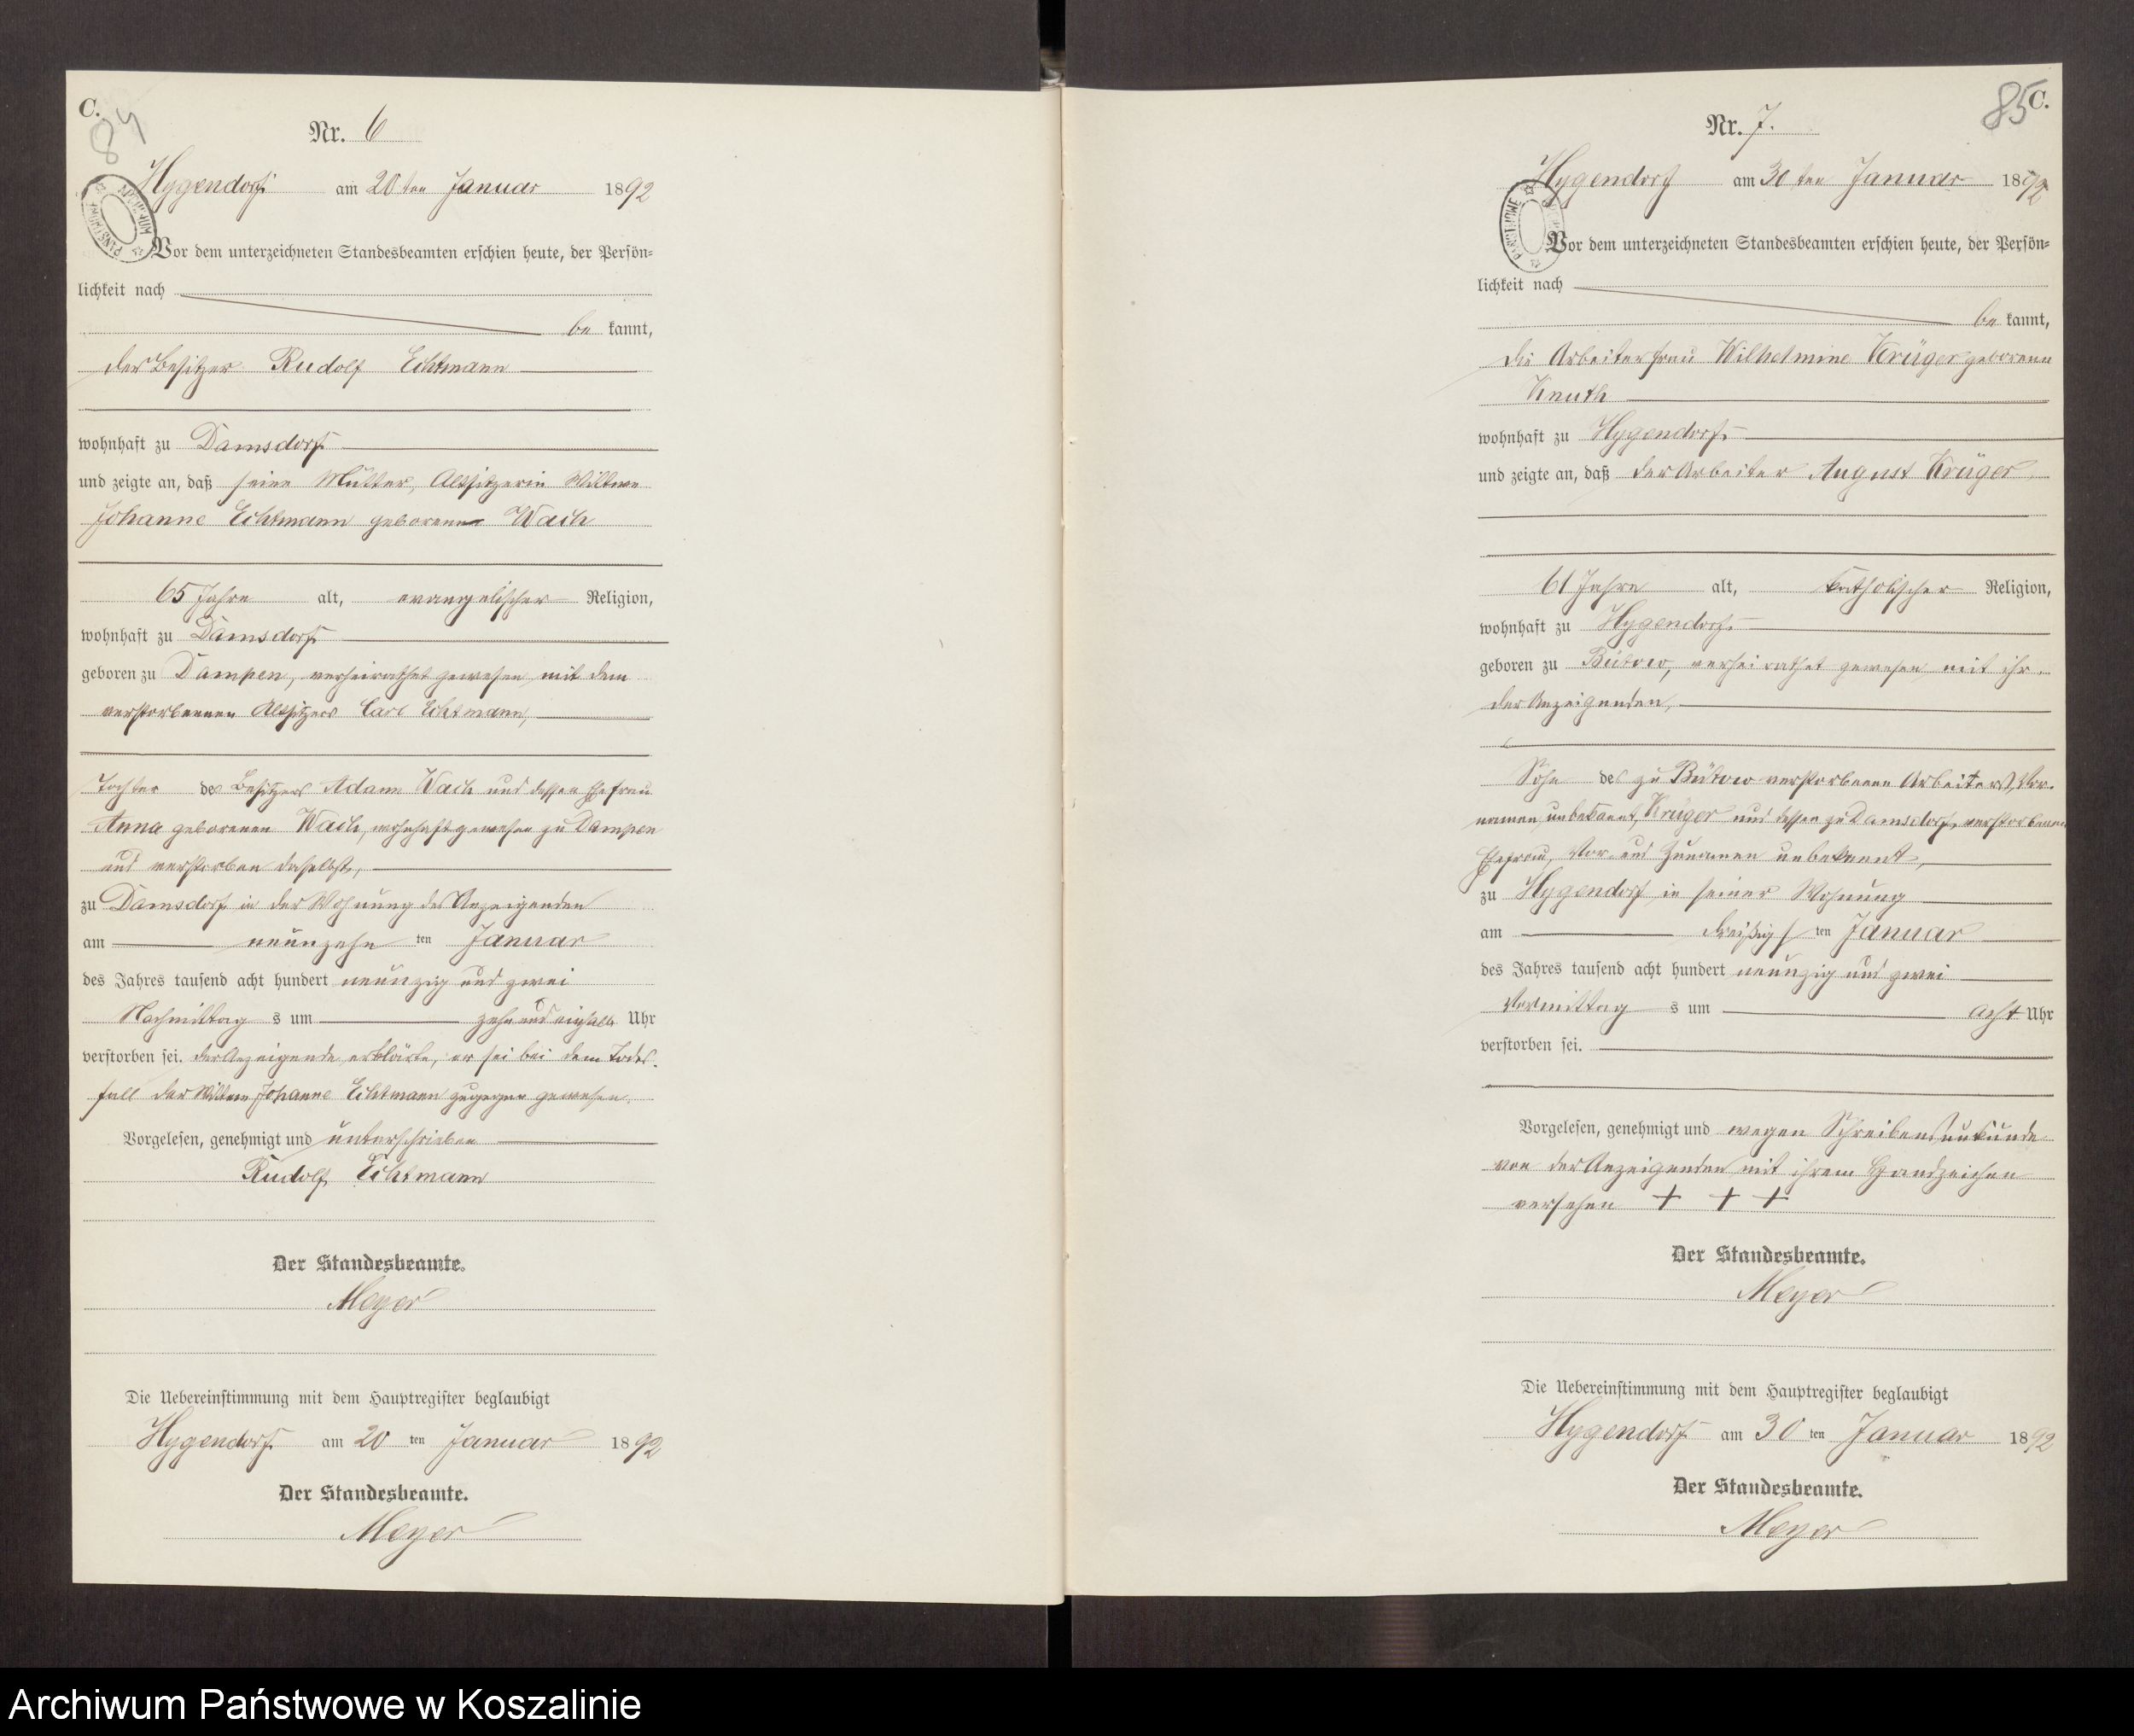 C.
84
Nr. 6
Hygendorf am 20ten Januar 1892
Vor dem unterzeichneten Standesbeamten erschien heute, der Persön=
lichkeit nach
be kannt,
der Besitzer Rudolf Echtmann
wohnhaft zu Damsdorf
und zeigte an, daß seine Mutter, Altsitzerin Wittwe
Johanne Echtmann geborene Wach
65 Jahre alt, evangelischer Religion,
wohnhaft zu Damsdorf
geboren zu Dampen, verheirathet gewesen mit dem
verstorbenen Altsitzer Carl Echtmann,
Tochter des Besitzers Adam Wach und dessen Ehefrau
Anna geborenen Wach, wohnhaft gewesen zu Dampen
und verstorben daselbst,
zu Damsdorf in der Wohnung des Anzeigenden
am neunzehn ten Januar
des Jahres tausend acht hundert neunzig und zwei
Nachmittag s um zehn und einhalb Uhr
verstorben sei. der Anzeigende erklärte, er sei bei dem Todes-
fall der Wittwe Johanne Echtmann zugegen gewesen.
Vorgelesen, genehmigt und unterschrieben
Rudolf Echtmann
Der Standesbeamte.
Meyer
Die Uebereinstimmung mit dem Hauptregister beglaubigt
Hygendorf am 20 ten Januar 1892
Der Standesbeamte.
Meyer
85 C.
Nr. 7.
Hygendorf am 30 ten Januar 1892
Vor dem unterzeichneten Standesbeamten erschien heute, der Persön=
lichkeit nach
be kannt,
die Arbeiterfrau Wilhelmine Krüger geborene
Knuth
wohnhaft zu Hygendorf
und zeigte an, daß der Arbeiter August Krüger
61 Jahre alt, katholischer Religion,
wohnhaft zu Hygendorf
geboren zu Bütow, verheirathet gewesen mit ihr
der Anzeigenden,
Sohn des zu Bütow verstorbenen Arbeiters, Vor-
namen unbekannt, Krüger und dessen zu Damsdorf verstorbenen
Ehefrau, Vor- und Zunamen unbekannt,
zu Hygendorf in seiner Wohnung
am dreißigs ten Januar
des Jahres tausend acht hundert neunzig und zwei
Vormittag s um acht Uhr
verstorben sei.
Vorgelesen, genehmigt und wegen Schreibensunkunde
von der Anzeigenden mit ihrem Handzeichen
versehen + + +
Der Standesbeamte.
Meyer
Die Uebereinstimmung mit dem Hauptregister beglaubigt
Hygendorf am 30 ten Januar 1892
Der Standesbeamte.
Meyer
Archiwum Państwowe w Koszalinie